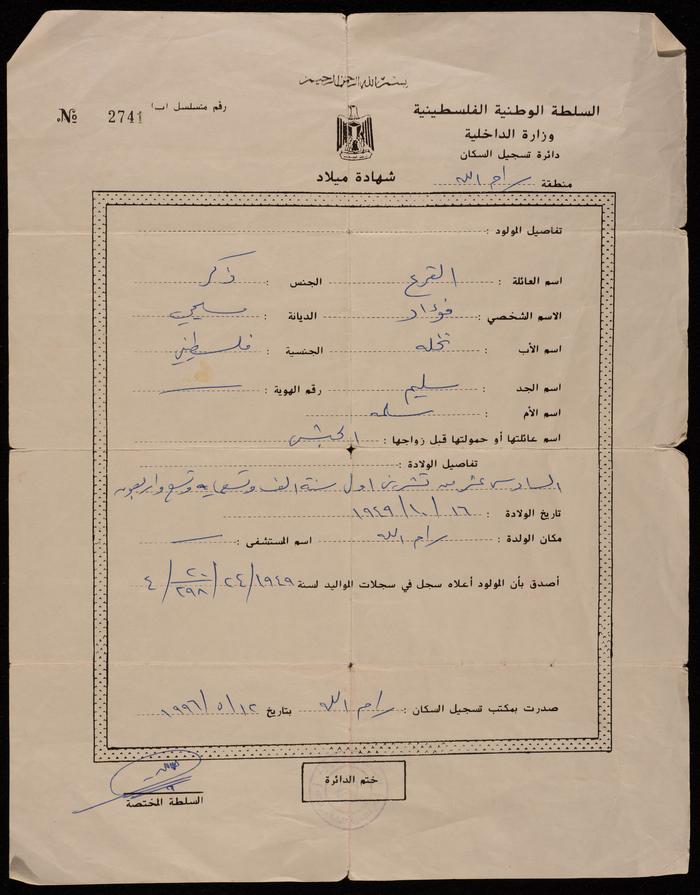 بسم الله الرحمن الرحيم
السلطة الوطنية الفلسطينية
وزارة الداخلية
دائرة تسجيل السكان
منطقة رام الله
رقم متسلسل (ب)
№ 2741
شهادة ميلاد
تفاصيل المولود :
اسم العائلة : القرع الجنس : ذكر
الاسم الشخصي : فؤاد الديانة : مسيحي
اسم الأب : نخله الجنسية : فلسطيني
اسم الجد : سليم رقم الهوية :
اسم الأم : سلمه
اسم عائلتها أو حمولتها قبل زواجها :
تفاصيل الولادة :
السادس عشر من تشرين اول سنة الف وتسعماية وتسع واربعون
تاريخ الولادة : ١٦/١٠/١٩٤٩
مكان الولدة : رام الله اسم المستشفى :
أصدق بأن المولود أعلاه سجل في سجلات المواليد لسنة ١٩٤٩/٢٤/٢٠/٢٩٨/٤
صدرت بمكتب تسجيل السكان : رام الله بتاريخ ١٢/٥/١٩٩٦
ختم الدائرة
السلطة المختصة